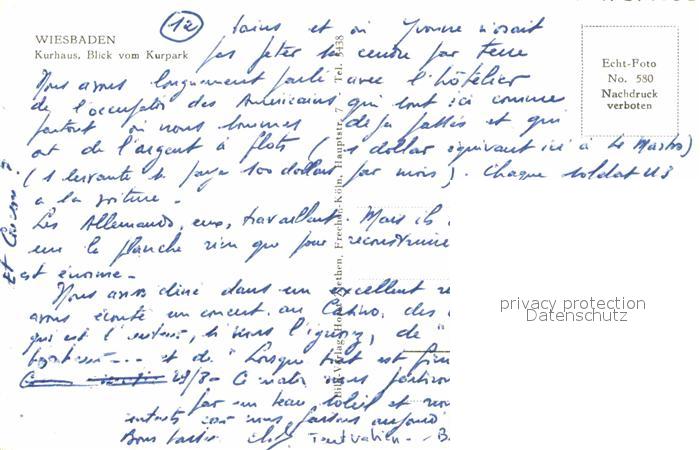 WIESBADEN
Kurhaus, Blick vom Kurpark
12
bains et où Yvonne n'osait
pas jeter sa cendre par terre
Nous avons longuement parlé avec l'hôtelier
de l'occupation des Américains qui sont ici comme
partout où nous sommes déjà passés et qui
ont de l'argent à flots (1 dollar équivaut ici à 4 Marks)
(1 servante se paye 100 dollars par mois). Chaque soldat US
a la voiture.
Les Allemands, eux, travaillent. Mais ils
sur la planche rien que pour reconstruire
est énorme.
Nous avons dîné dans un excellent
avons écouté un concert au Casino, des
qui est l'auteur, si tu l'ignores, de "
et de "Lorsque tout est fini
28/8- Ce matin nous partons
par un beau soleil et
où nous faisons aujourd
Bons baisers
Echt-Foto
No. 580
Nachdruck
verboten
Bild-Verlag Horst Ziethen, Frechen-Köln, Hauptstr. 7 · Tel. 5438
privacy protection
Datenschutz